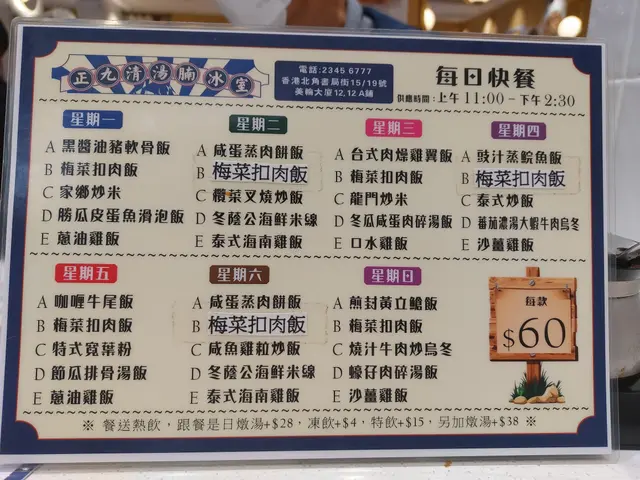 正九清湯腩冰室
電話:2345 6777
香港北角書局街15/19號
美輪大廈12,12A鋪
每日快餐
供應時間:上午11:00-下午2:30
星期一
A 黑醬油豬軟骨飯
B 梅菜扣肉飯
C 家鄉炒米
D 勝瓜皮蛋魚滑泡飯
E 蔥油雞飯
星期二
A 咸蛋蒸肉餅飯
B 梅菜扣肉飯
C 欖菜叉燒炒飯
D 冬蔭公海鮮米線
E 泰式海南雞飯
星期三
A 台式肉燥雞翼飯
B 梅菜扣肉飯
C 龍門炒米
D 冬瓜咸蛋肉碎湯飯
E 口水雞飯
星期四
A 豉汁蒸鯇魚飯
B 梅菜扣肉飯
C 泰式炒飯
D 蕃茄濃湯大蝦牛肉烏冬
E 沙薑雞飯
星期五
A 咖喱牛尾飯
B 梅菜扣肉飯
C 特式寬葉粉
D 節瓜排骨湯飯
E 蔥油雞飯
星期六
A 咸蛋蒸肉餅飯
B 梅菜扣肉飯
C 咸魚雞粒炒飯
D 冬蔭公海鮮米線
E 泰式海南雞飯
星期日
A 煎封黃立鯧飯
B 梅菜扣肉飯
C 燒汁牛肉炒烏冬
D 蠔仔肉碎湯飯
E 沙薑雞飯
每款
$60
※ 餐送熱飲，跟餐是日燉湯+$28，凍飲+$4，特飲+$15，另加燉湯+$38 ※